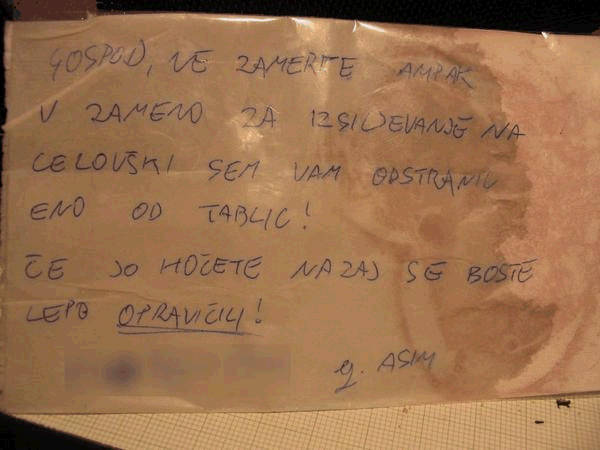 GOSPOD, NE ZAMERITE AMPAK
V ZAMENO ZA IZSILJEVANJE NA
CELOVŠKI SEM VAM ODSTRANIL
ENO OD TABLIC!
ČE JO HOČETE NAZAJ SE BOSTE
LEPO OPRAVIČILI!
g. ASIM